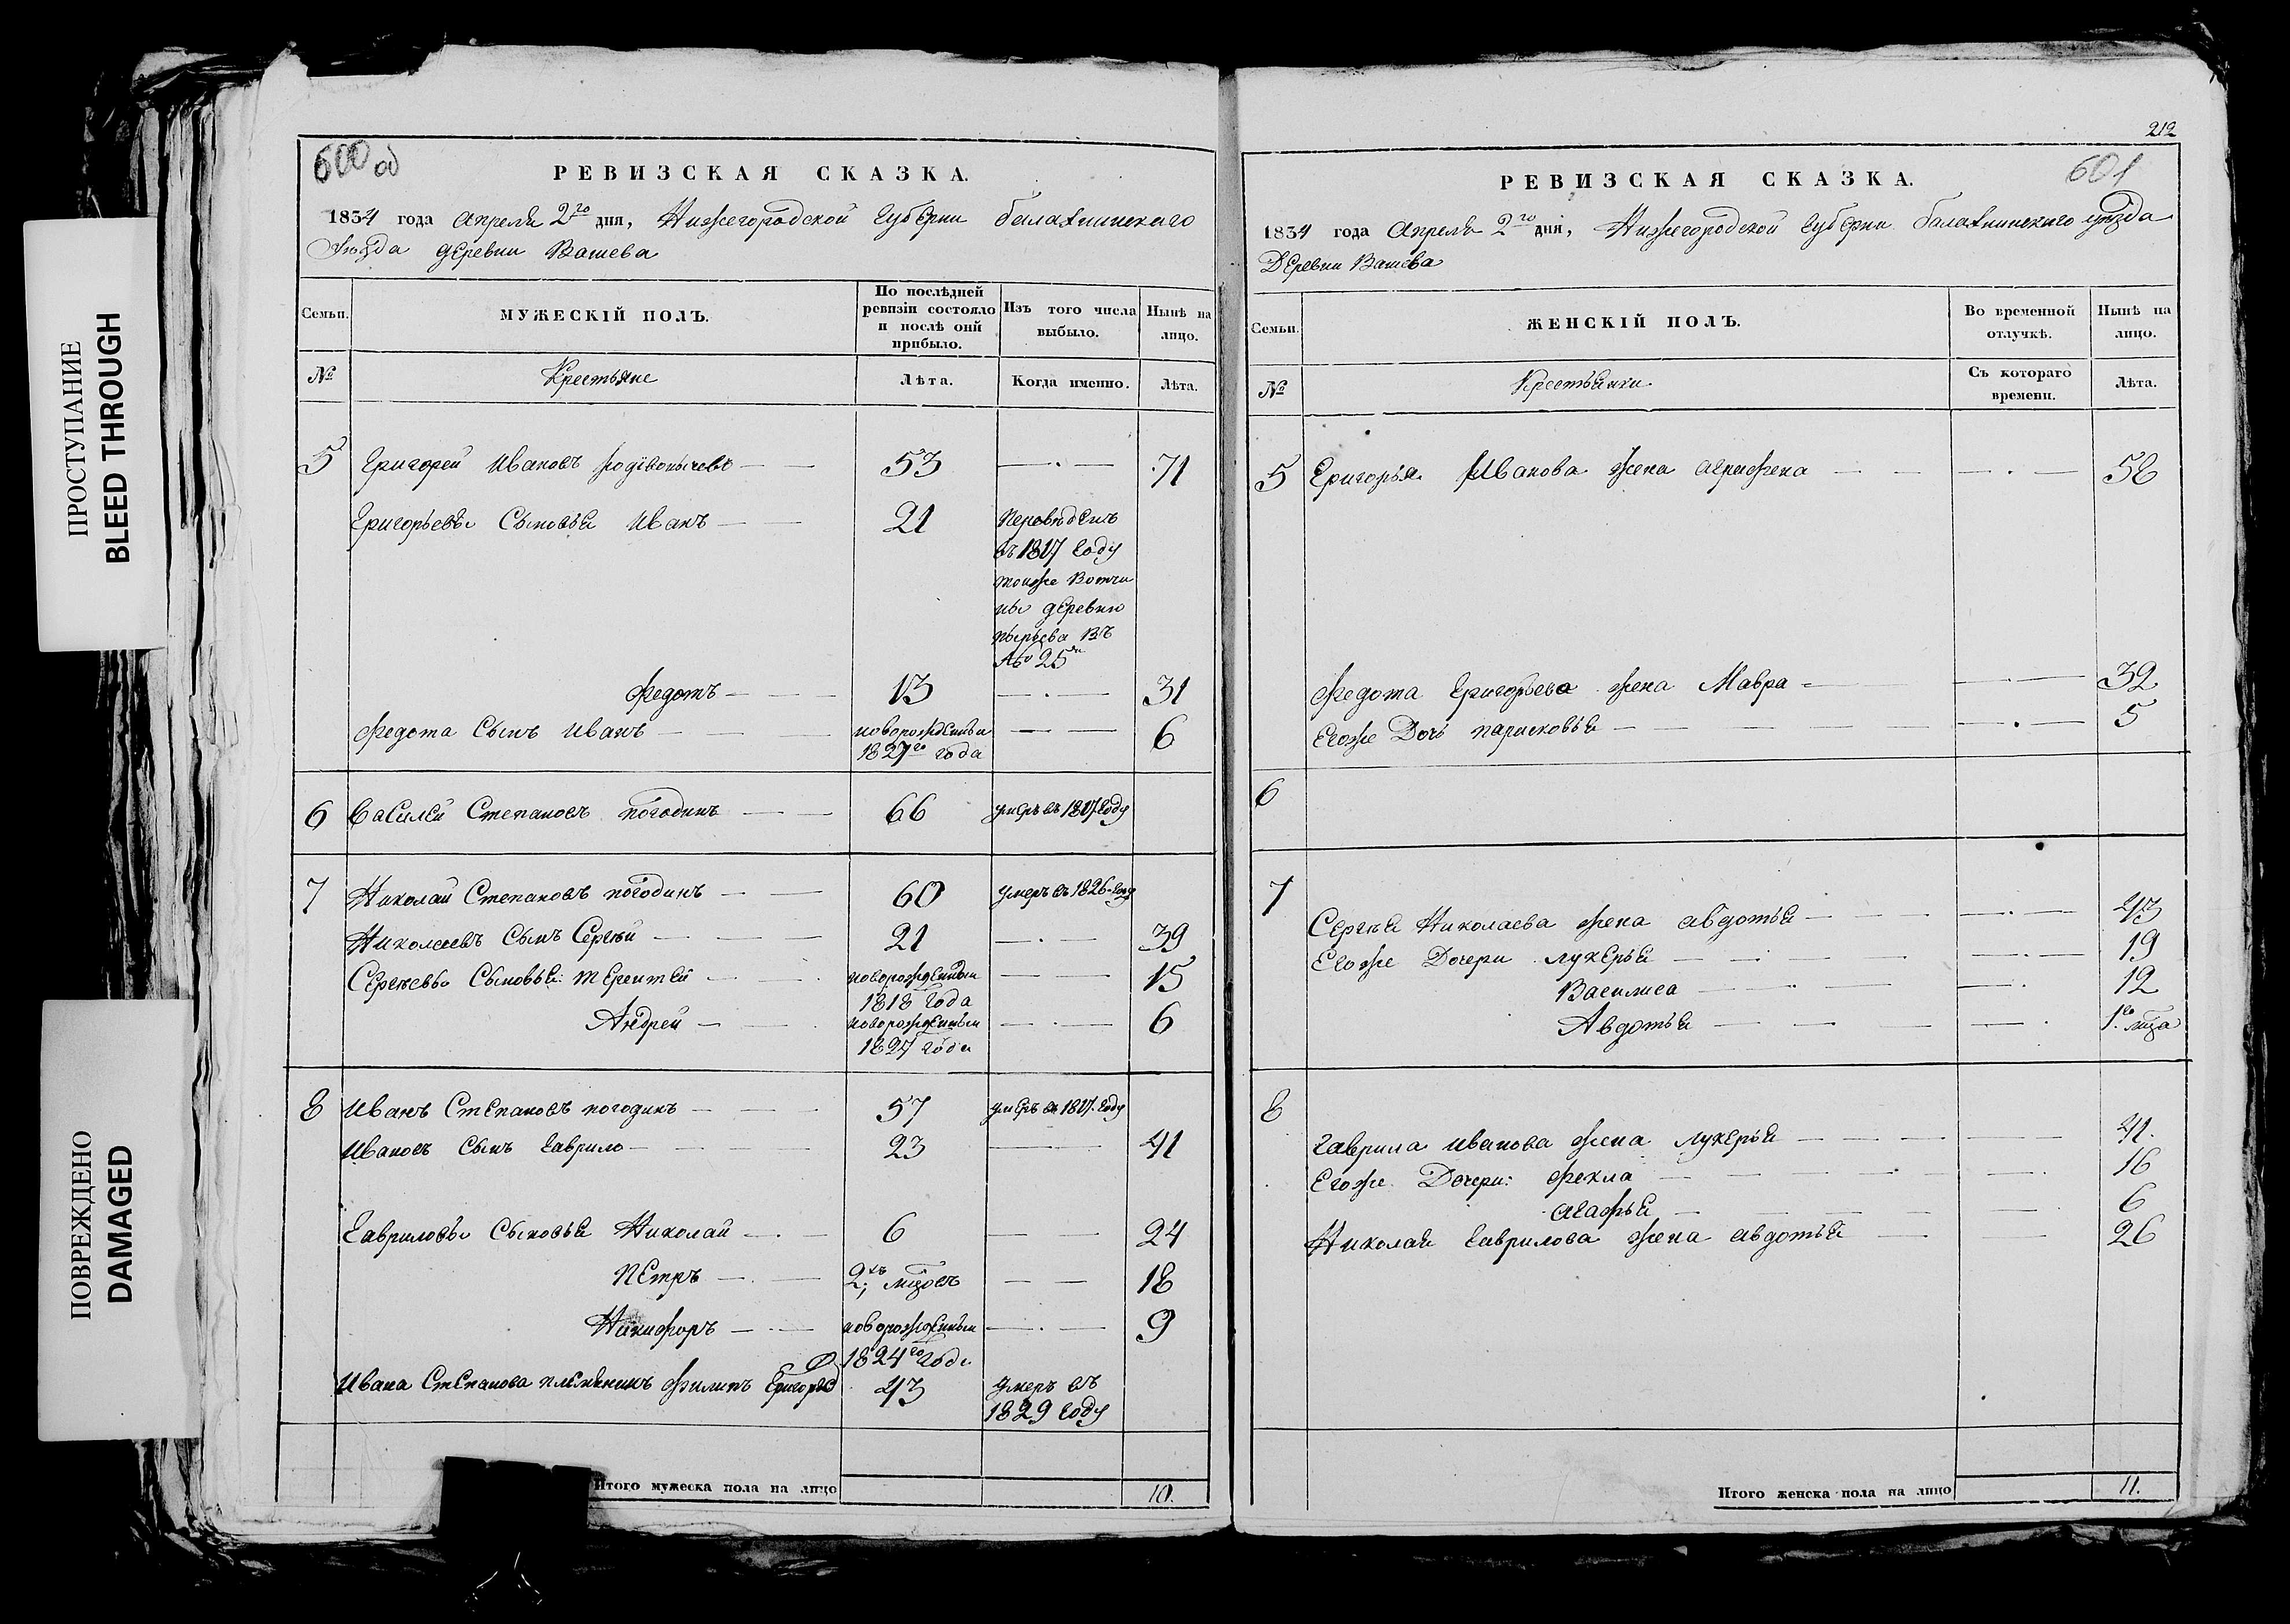 ПРОСТУПАНИЕ
BLEED THROUGH
ПОВРЕЖДЕНО
DAMAGED
600 об
РЕВИЗСКАЯ СКАЗКА.
1834 года апреля 2го дня, Нижегородской губерни балахнинского
уезда деревни Вашева
Семьи. МУЖЕСКІЙ ПОЛЪ. По послѣдней ревизіи состояло и послѣ оной прибыло. Изъ того числа выбыло. Нынѣ на лицо.
№ Крестьяне Лѣта. Когда именно. Лѣта.
5 Григорей Ивановъ 53 71
Григорьевы Сыновья Иванъ 21 переведенъ
въ 1817 году
тоиже вотчи
ны деревню
пырьева въ
№ 25
Федотъ 13 31
Федота Сынъ Иванъ новорожденный 6
1827го года
6 Василей Степановъ погодинъ 66 умеръ въ 1817 году
7 Николай Степановъ погодинъ 60 умеръ въ 1826 году
Николаевъ Сынъ Сергѣй 21 39
Сергѣевы Сыновья: терентей новорожденный 15
1818 года
Андрей новорожденный 6
1827 года
8 Иванъ Степановъ погодинъ 57 умеръ въ 1817 году
Ивановъ Сынъ Гаврило 23 41
Гавриловы Сыновья Николай 6 24
Петръ 2хъ мцовъ 18
Никифоръ новорожденный 9
1824го года
Ивана Степанова племенникъ Филипъ Григорьевъ 43 умеръ въ
1829 году
Итого мужеска пола на лицо 10.
212
601
РЕВИЗСКАЯ СКАЗКА.
1834 года Апреля 2го дня, Нижегородской губерни балахнинского уезда
Деревни Вашева
Семьи. ЖЕНСКІЙ ПОЛЪ. Во временной отлучкѣ. Нынѣ на лицо.
№ Крестьянки Съ котораго времени. Лѣта.
5 Григорья Иванова жена 58
Федота Григорьева жена Мавра 32
Егоже Дочь парасковья 5
6
7
Сергѣя Николаева жена авдотья 43
Егоже Дочери лукерья 19
Василиса 12
Авдотья 1го мца
8
Гаврила иванова жена лукерья 41.
Егоже Дочери: Фекла 16
агафья 6
Николая Гаврилова жена авдотья 26
Итого женска пола на лицо 11.